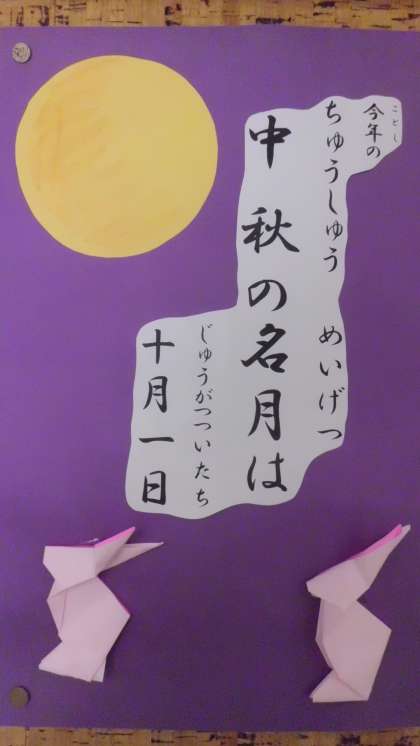 ことし
今年の
ちゅうしゅう めいげつ
中秋の名月は
じゅうがつついたち
十月一日